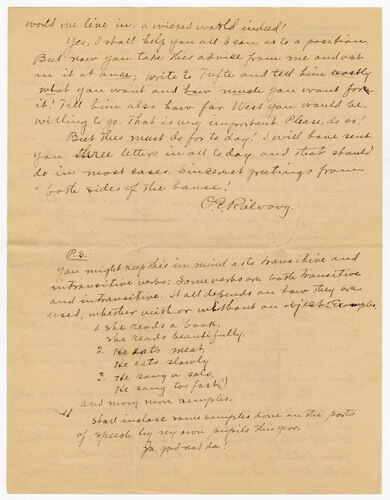 world we live in, a wicked world indeed!
Yes, I shall help you all I can as to a position.
But now you take this advice from me and act
on it at once; write to Tufte and tell him exactly
what you want and how much you want for
it! Tell him also how far West you would be
willing to go. That is very important. Please, do so!
But this must do for to day! I will have sent
you three letters in all to day and that should
do in most cases. Sincerest greetings from
"both sides of the house!
P.S.
You might keep this in mind as to transitive and
intransitive verbs: Some verbs are both transitive
and intransitive. It all depends on how they are
used, whether with or without an object. Examples
1. She reads a book,
She reads beautifully.
2. He eats meat,
He eats slowly
3. He sang a solo,
He sang too fast(!)
And many more examples.
Shall inclose some samples done on the parts
of speech by my own pupils this year.
Ja, god nat da!